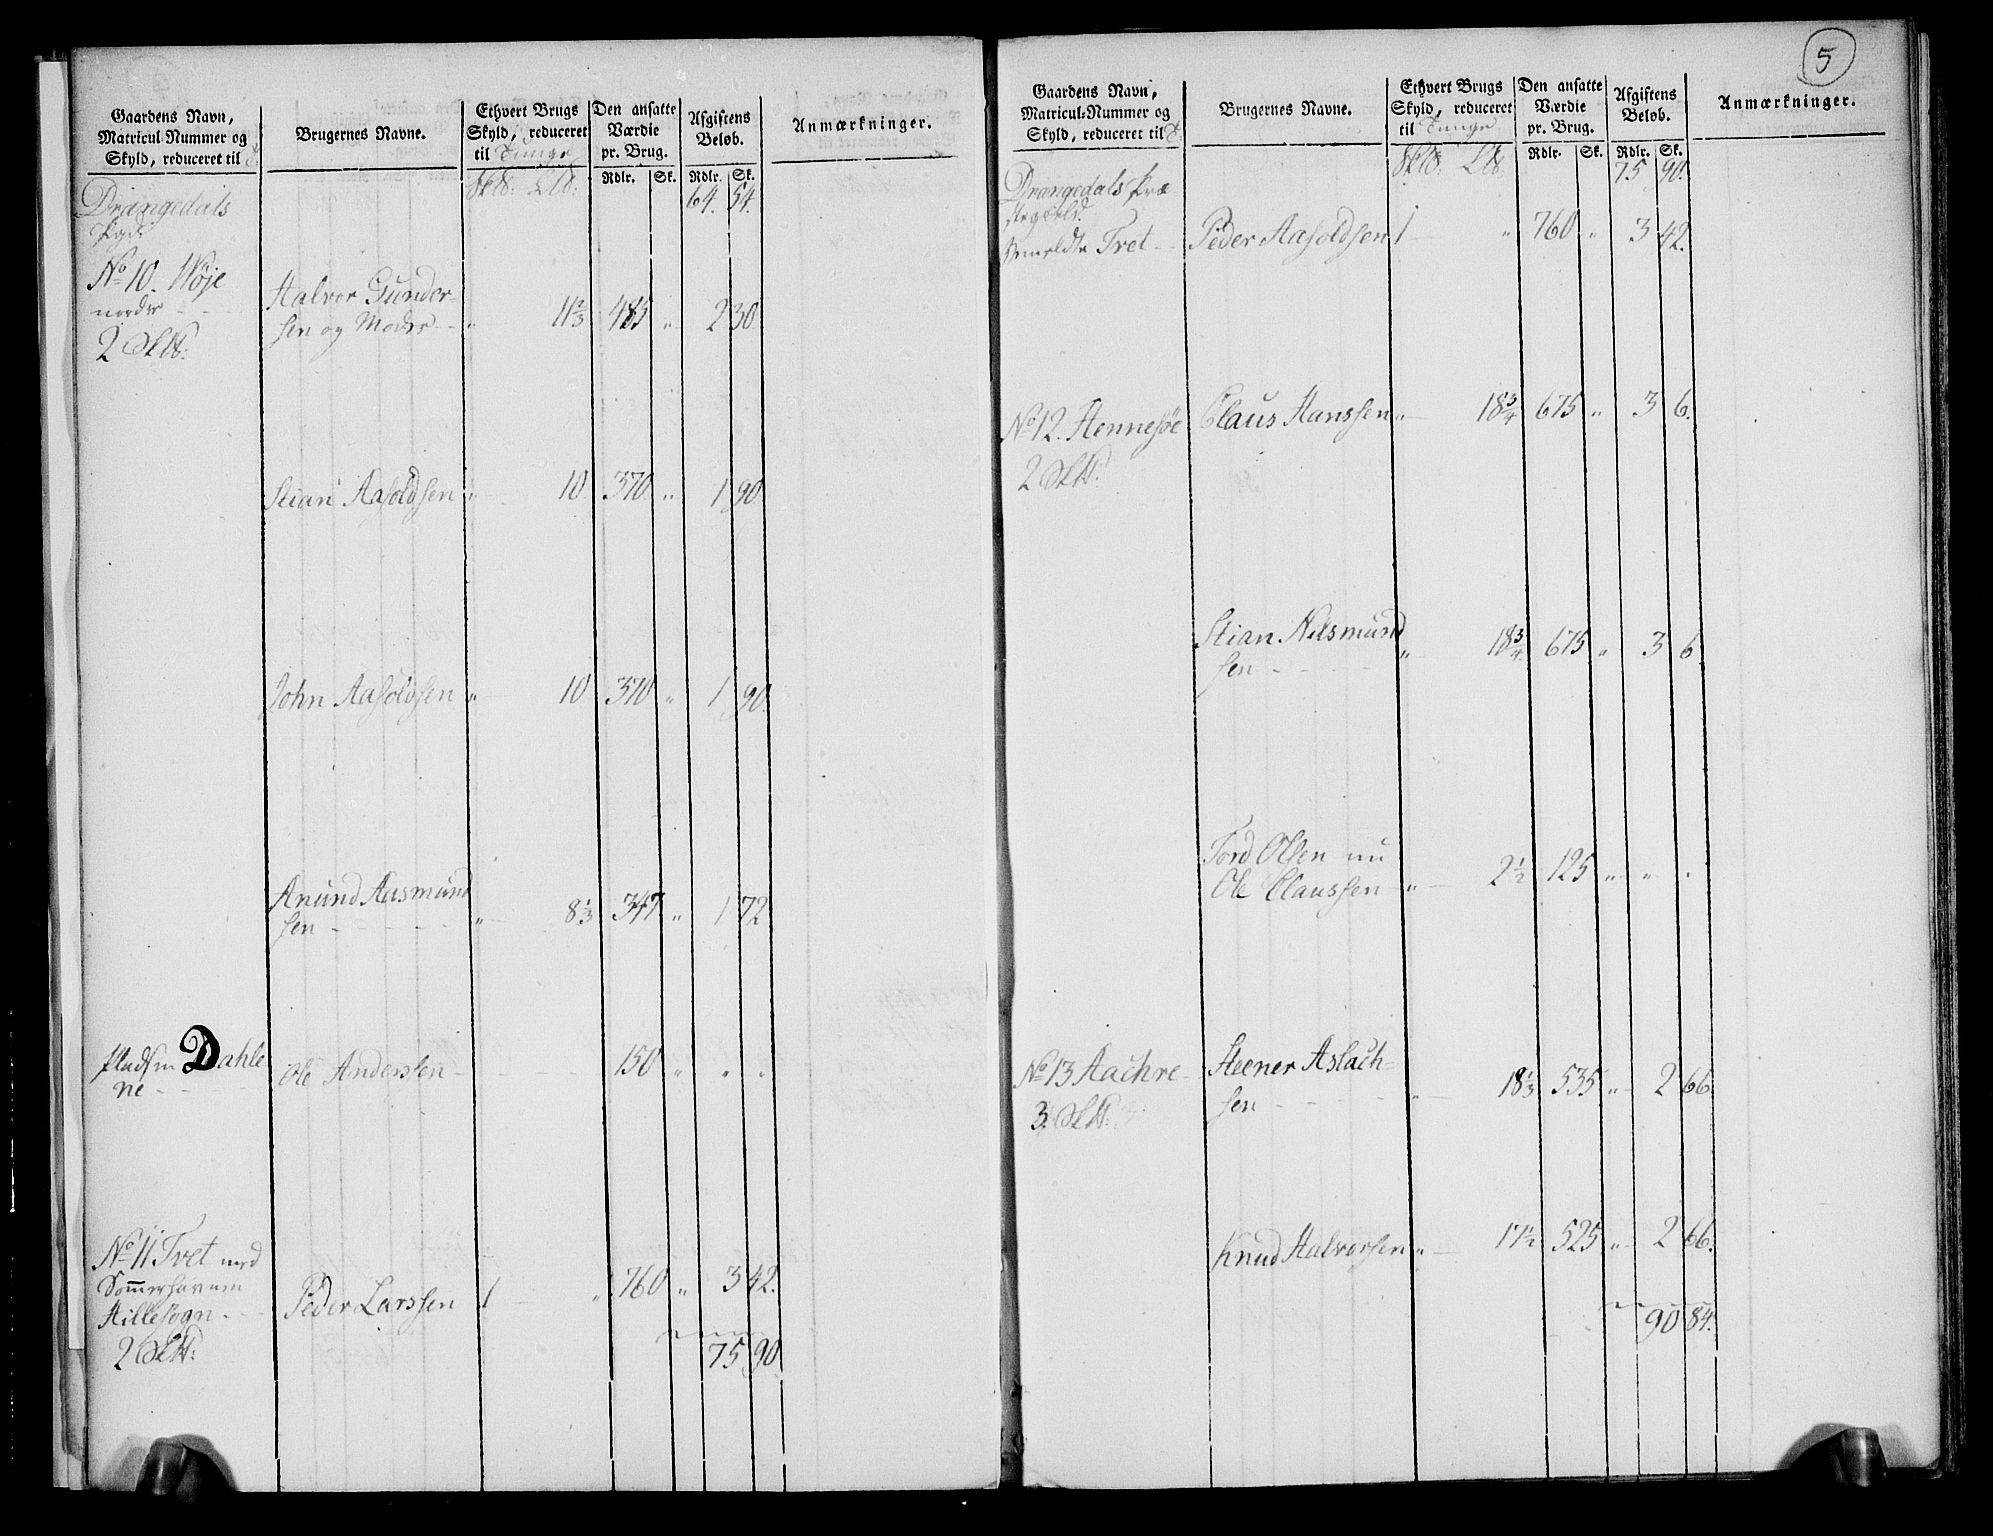 Gaardens Navn, Matricul-Nummer og Skyld, reduceret til
Brugernes Navne.
Ethvert Brugs Skyld, reduceret til Tunge
Den ansatte Værdie pr. Brug.
Afgiftens Beløb.
Anmærkninger.
Rdlr. Sk. Rdlr. Sk.
Drangedals 64. 54.
Pgd:
No 10. Wöje Halvor Gunder-
nordre sen og Moder " 11 2/3 485 " 2 30.
2 Sk℔:
Stian Aasoldsen " 10 370 " 1 90
John Aasoldsen " 10 370 " 1 90.
Anund Aasmund
sen " 8 1/3 347 " 1 72
Pladsen Dahle Ole Anderssen 150 " " "
ne
No 11 Tvet med
Hillesogn Peder Larssen 1 " 760 " 3 42.
2 Sk℔: 75 90
5
Gaardens Navn, Matricul-Nummer og Skyld, reduceret til
Brugernes Navne.
Ethvert Brugs Skyld, reduceret til Tunge
Den ansatte Værdie pr. Brug.
Afgiftens Beløb.
Anmærkninger.
Rdlr. Sk. Rdlr. Sk.
Drangedals Præ 75 90.
stegield.
Tvet Peder Aasoldsen 1 " 760 " 3 42.
No 12. Hennesöe Claus Hanssen " 18 3/4 675 " 3 6.
2 Sk℔:
Stian Nilsmund
sen " 18 3/4 675 " 3 6
Tord Olsen nu
Ole Claussen " 2 1/2 125 " " "
No 13 Aachre Steener Aslach-
3. Sk℔: sen " 18 1/3 535 " 2 66.
Knud Halvorsen " 17 1/2 525 " 2 66.
90 84.